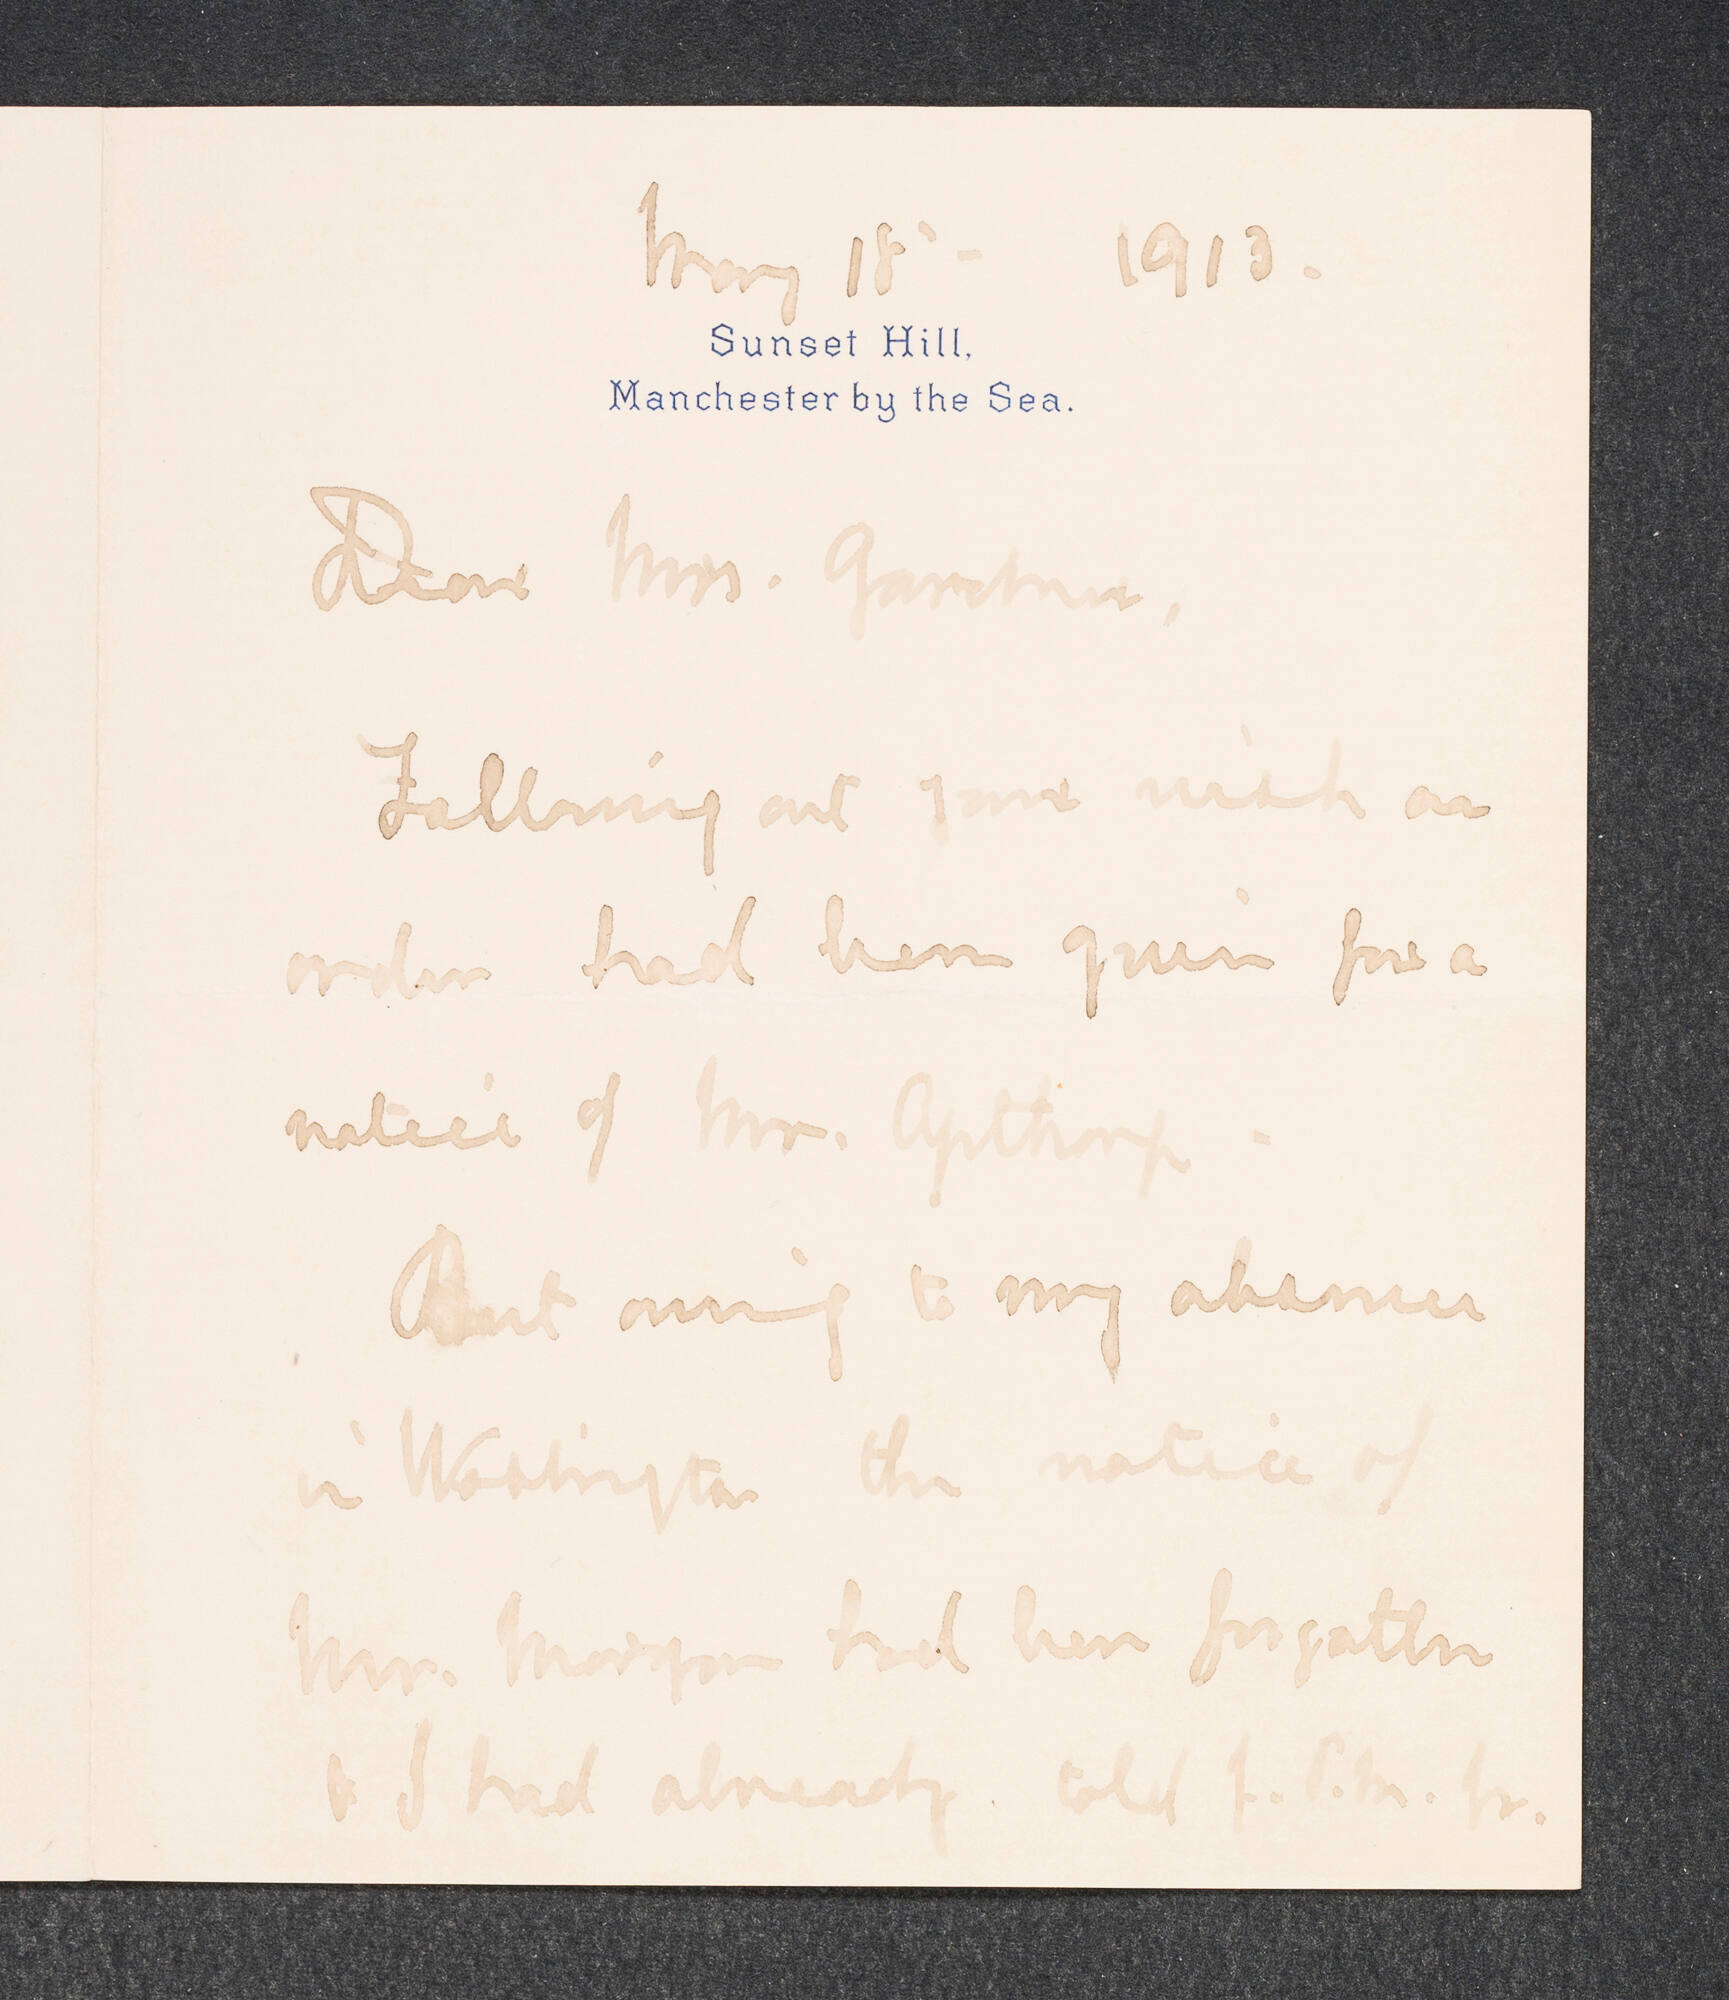 May 18 - 1913.
Sunset Hill,
Manchester by the Sea.
Dear Mrs. Gardner,
Following out your wish an
order had been given for a
notice of Mr. Apthorp -
But owing to my absence
in Washington the notice of
Mr. Morgan had been forgotten
& I had already told J. P. M. Jr.